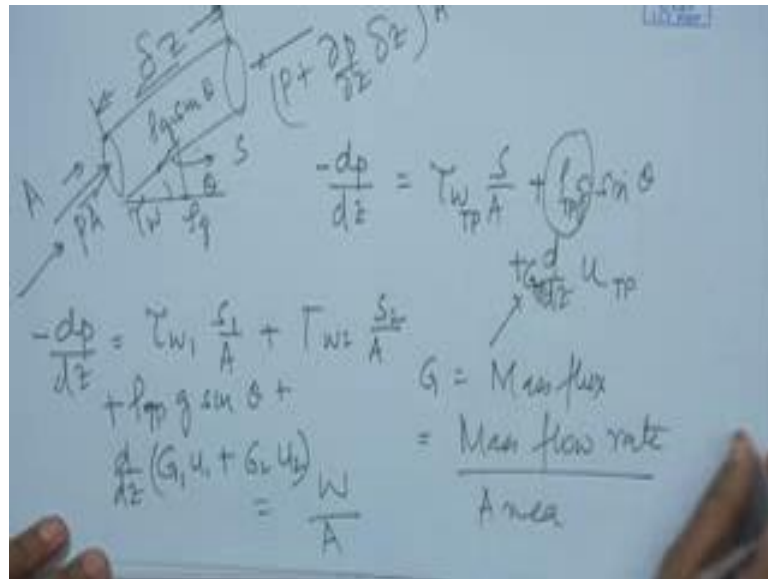 δz
(p + ∂p/∂z δz) A
ρg sin θ
S
A
θ
pA
τw
ρg
-dp/dz = τw TP S/A + ρTP g sin θ
+ G d/dz uTP
-dp/dz = τw1 S1/A + τw2 S2/A
+ ρTP g sin θ +
d/dz (G1 u1 + G2 u2)
G = Mass flux
= Mass flow rate / Area
= W/A